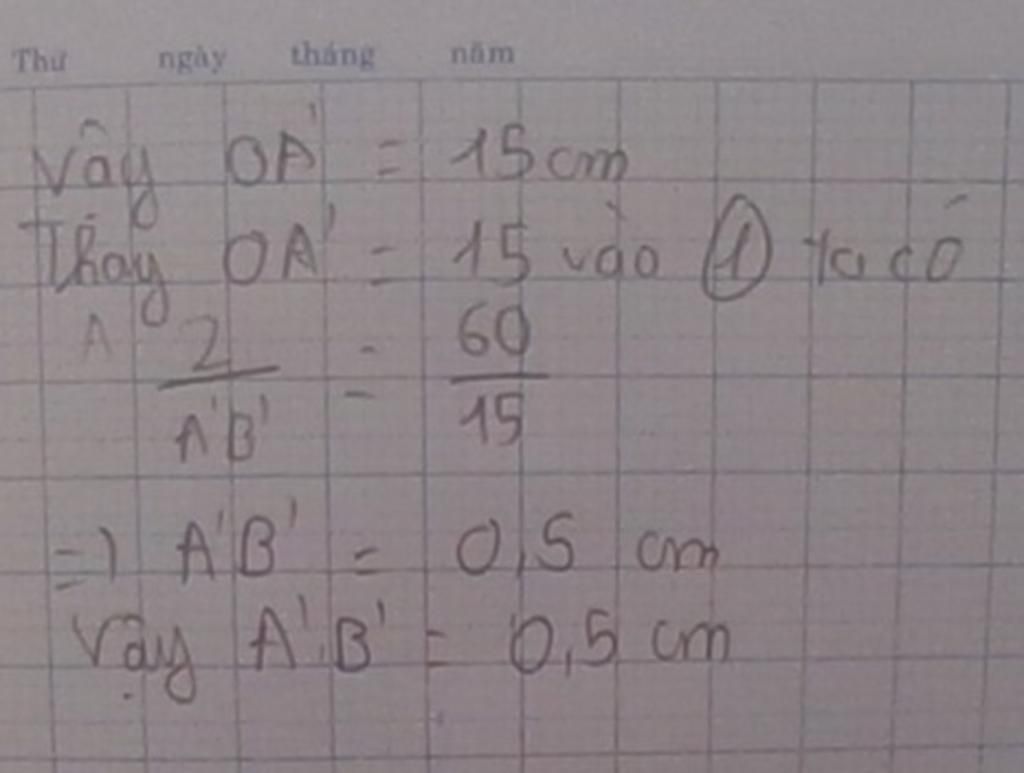 Thứ ngày tháng năm
Vậy OA' = 15cm
Thay OA' = 15 vào ① ta có
A 2/A'B' = 60/15
=) A'B' = 0,5 cm
Vậy A'B' = 0,5 cm